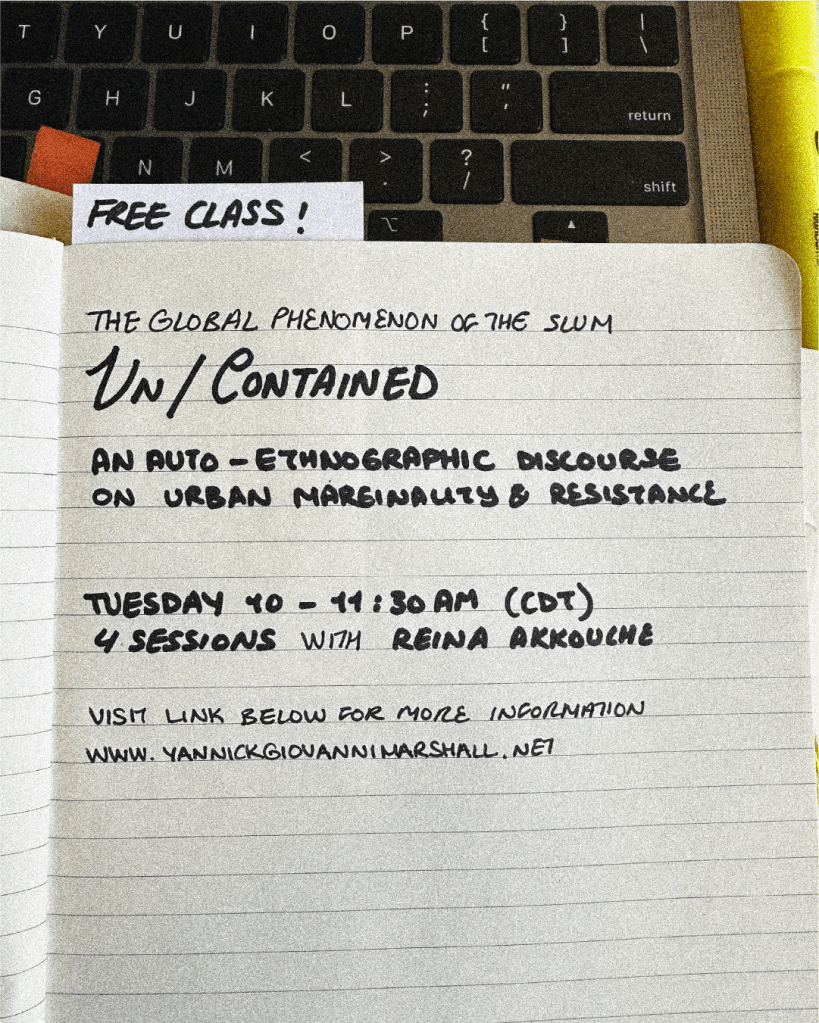 T Y U I O P { [ } ] | \
G H J K L : ; " ' return
N M < , > . ? / shift
FREE CLASS!
THE GLOBAL PHENOMENON OF THE SLUM
UN/CONTAINED
AN AUTO-ETHNOGRAPHIC DISCOURSE
ON URBAN MARGINALITY & RESISTANCE
TUESDAY 10 - 11:30 AM (CDT)
4 SESSIONS WITH REINA AKKOUCHE
VISIT LINK BELOW FOR MORE INFORMATION
WWW.YANNICKGIOVANNIMARSHALL.NET